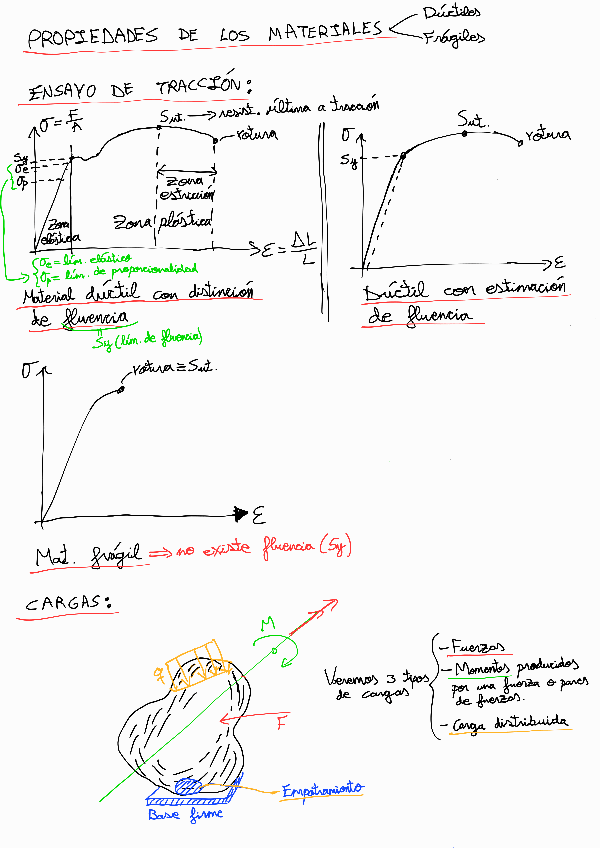 PROPIEDADES DE LOS MATERIALES
Dúctiles
Frágiles
ENSAYO DE TRACCIÓN:
σ = F/A
Sut. → resist. última a tracción
rotura
Sy
σe
σp
Zona elástica
Zona plástica
Zona estricción
ε = ΔL/L
σe = lím. elástico
σp = lím. de proporcionalidad
Material dúctil con distinción
de fluencia
Sy (lím. de fluencia)
σ
Sut.
rotura
Sy
ε
Dúctil con estimación
de fluencia
σ
rotura ≡ Sut.
ε
Mat. frágil ⇒ no existe fluencia (Sy)
CARGAS:
M
q
F
Empotramiento
Base firme
Veremos 3 tipos
de cargas
- Fuerzas
- Momentos producidos
por una fuerza o pares
de fuerzas.
- Carga distribuida